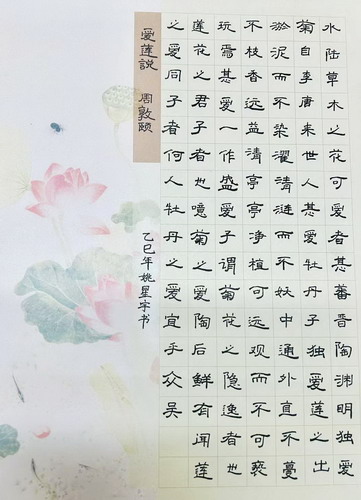 愛蓮説 周敦颐
水陆草木之花可爱甚蕃晋陶渊明独爱
菊自李唐来世人甚爱牡丹子独爱莲之出
淤泥而不染濯清涟而不妖中通外直不蔓
不枝香远益清亭亭净植可远观而不可亵
玩焉甚爱一作盛爱子谓菊花之隐逸者也
莲花之君子者也噫菊之爱陶后鲜有闻莲
之爱同子者何人牡丹之爱宜乎众吴
乙巳年姚星宇书